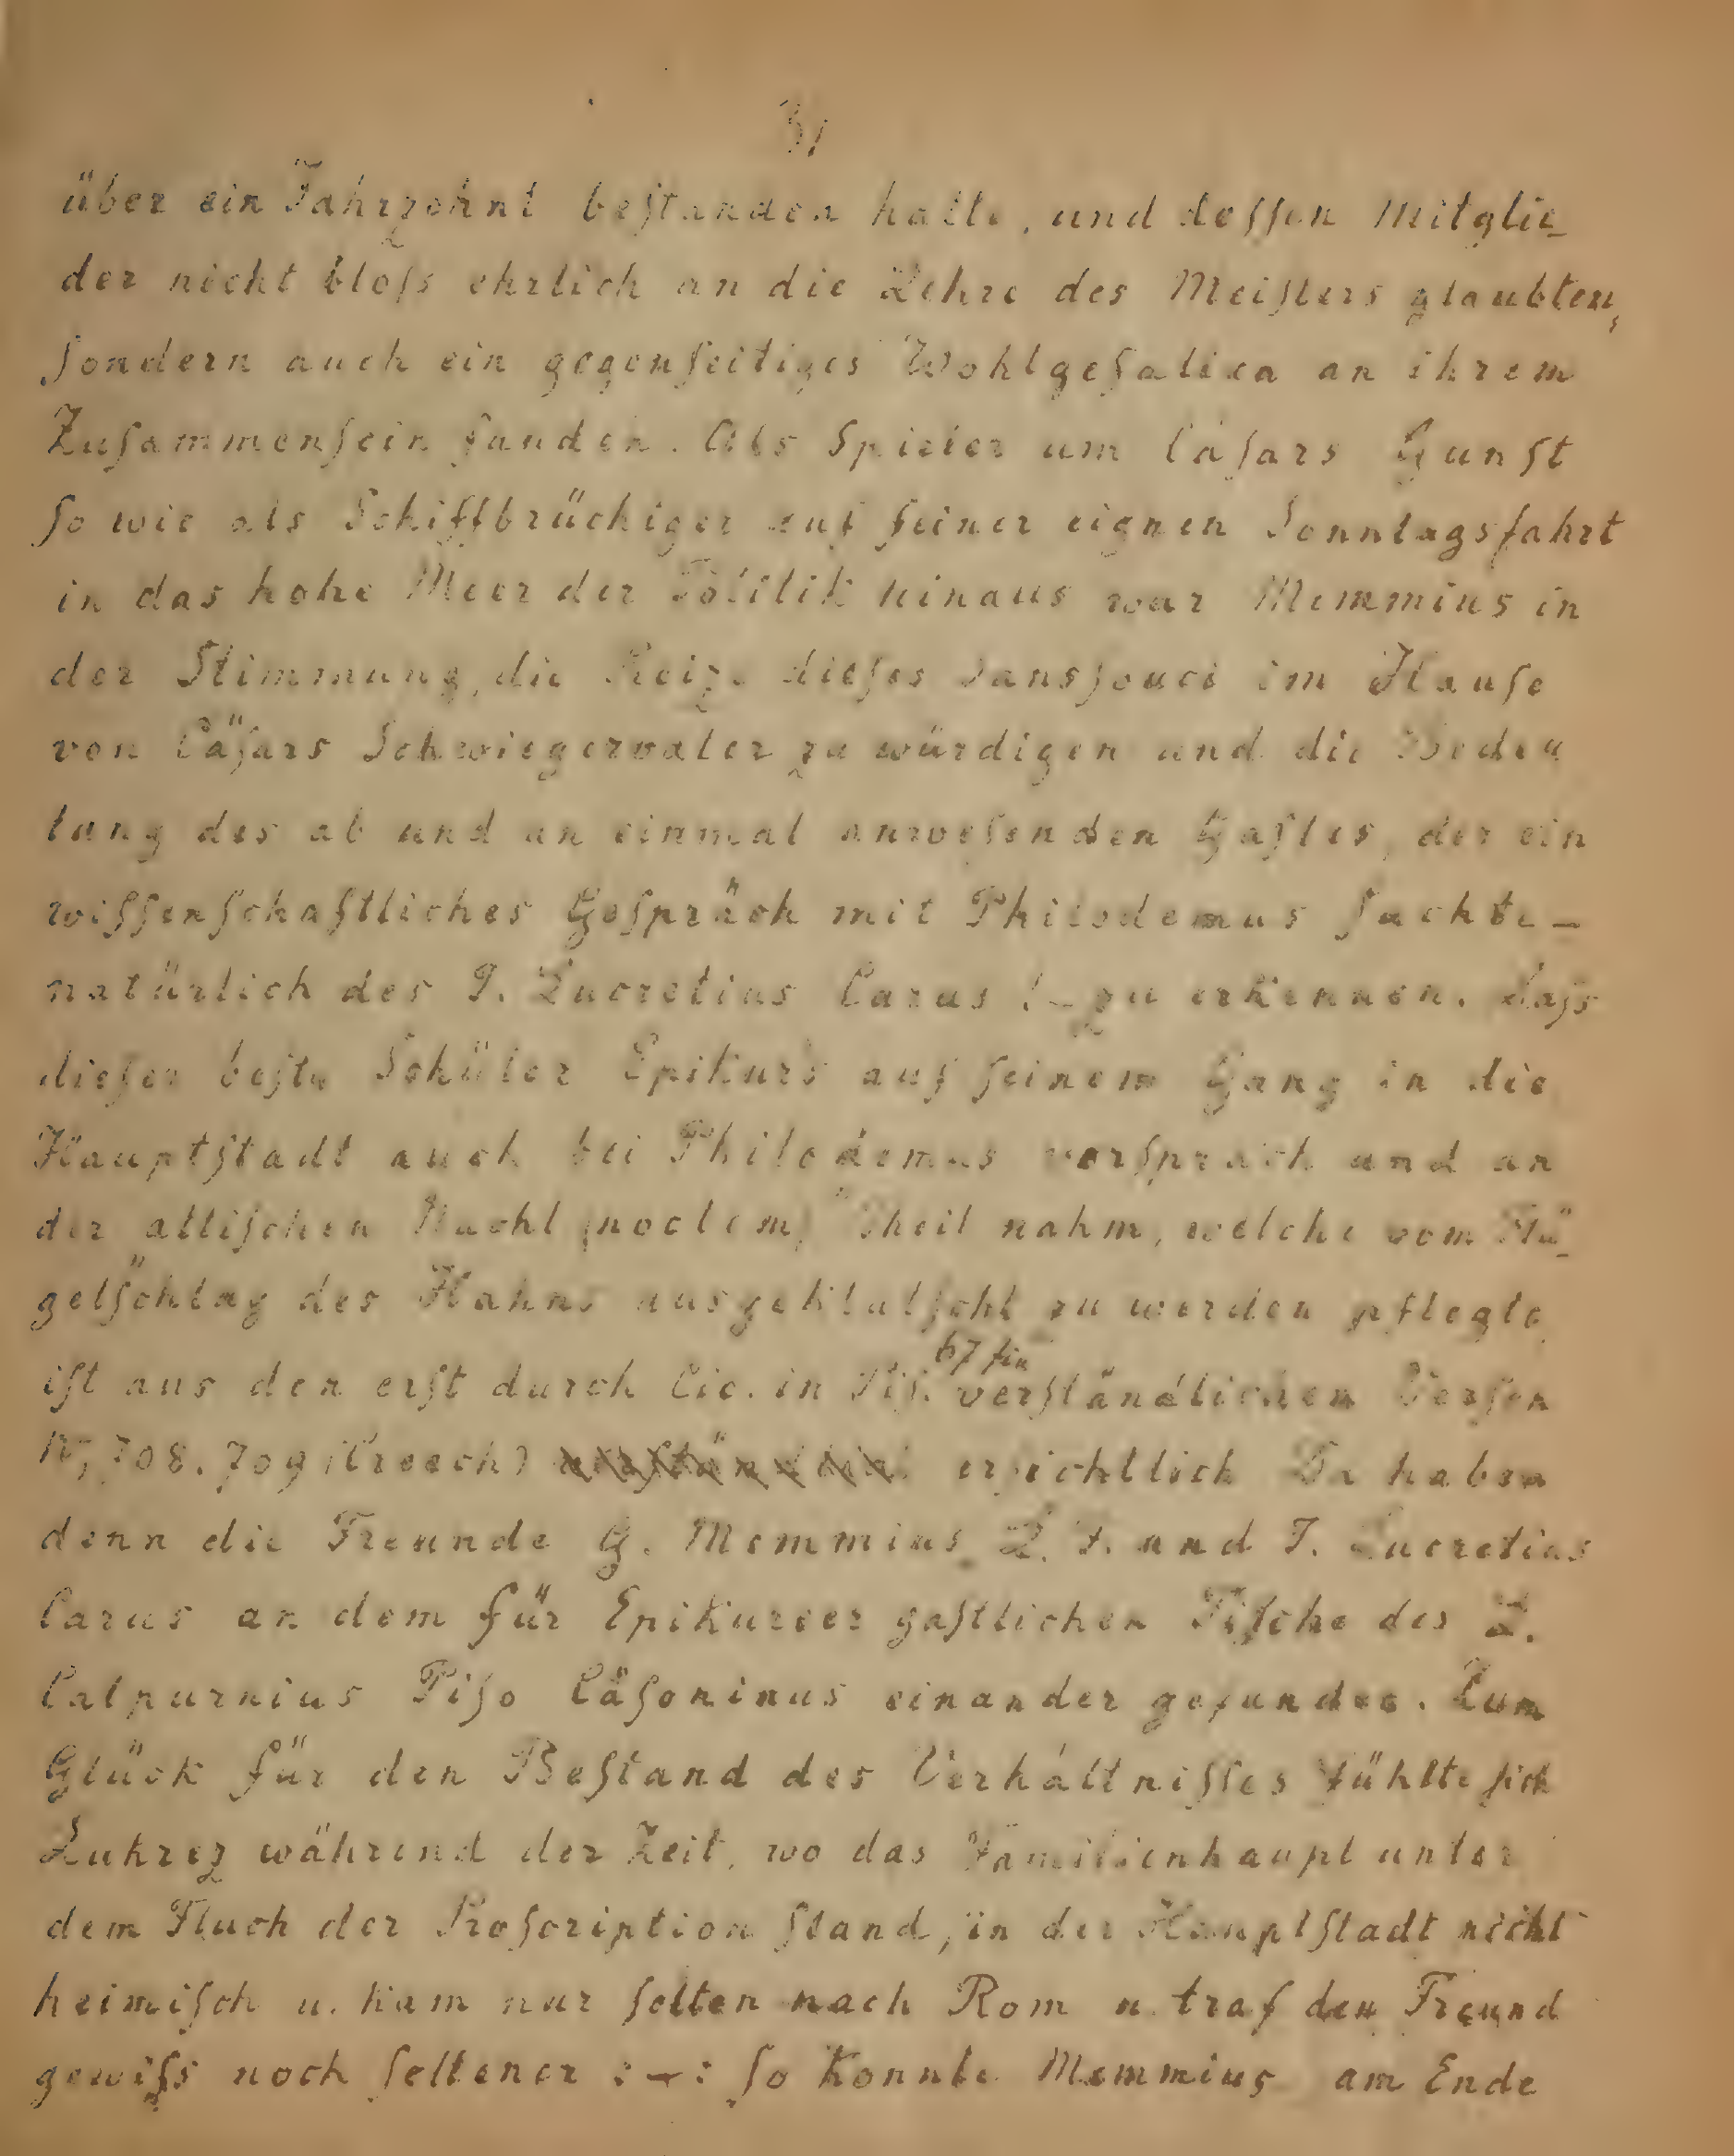 31
über ein Jahrzehnt beſtanden hatte, und deſſen Mitglie-
der nicht bloſs ehrlich an die Lehre des Meiſters glaubten,
ſondern auch ein gegenſeitiges Wohlgefallen an ihrem
Zuſammenſein fanden. Als Spieler um Cäſars Gunſt
ſo wie als Schiffbrüchiger auf ſeiner eignen Sonntagsfahrt
in das hohe Meer der Politik hinaus war Memmius in
der Stimmung, die Reize dieſes Sansſouci im Hauſe
von Cäſars Schwiegervater zu würdigen und die Bedeu
tung des ab und an einmal anweſenden Gaſtes, der ein
wiſſenſchaftliches Geſpräch mit Philodemus ſuchte –
natürlich des T. Lucretius Carus! – zu erkennen. Daſs
dieſer beſte Schüler Epikurs auf ſeinem Gang in die
Hauptſtadt auch bei Philodemus vorſprach und an
der „attiſchen Nacht (noctem)" Theil nahm, welche vom Flü-
gelſchlag des Hahns ausgeklatſcht zu werden pflegte,
iſt aus den erſt durch Cic. in Piſ. 67 fin verſtändlichen Verſen
IV, 708. 709 (Creech) erſichtlich Da haben
denn die Freunde G. Memmius L. F. und T. Lucretius
Carus an dem für Epikureer gaſtlichen Tiſche des L.
Calpurnius Piſo Cäſoninus einander gefunden. Zum
Glück für den Beſtand des Verhältniſſes fühlte ſich
Lukrez während der Zeit, wo das Familienhaupt unter
dem Fluch der Proſcription ſtand, in der Hauptſtadt nicht
heimiſch u. kam nur ſelten nach Rom u. traf den Freund
gewiſs noch ſeltener :–: ſo konnte Memmius am Ende